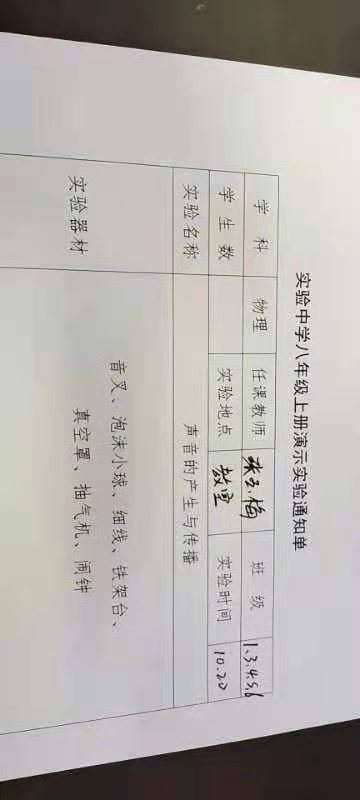 实验中学八年级上册演示实验通知单
学 科 物理 任课教师 张玉梅 班 级 1.3.4.5.6
学生数 实验地点 教室 实验时间 10.20
实验名称 声音的产生与传播
实验器材 音叉、泡沫小球、细线、铁架台、
真空罩、抽气机、闹钟